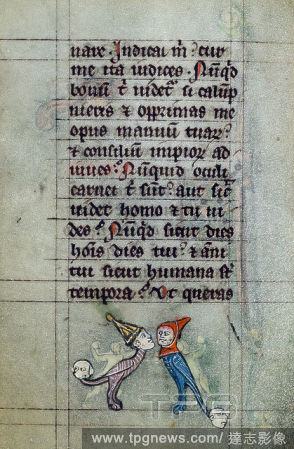 uare. Indica m̄ cur
me ita iudices. Nūqͥd
bonū t̄ uidet᷑ si calūp
nieris & opprimas me
opus manuū tuar᷑?
& consiliū impior᷑ ad
iuues? Nunquid oculi
carnei t̄ sūt? aut sic̄
uidet homo & tu ui
des? Nūqͥd sicut dies
hoīs dies tui? & anī
tui sicut humana st̄
tempora? Ut queras
www.tpgnews.com/ 達志影像